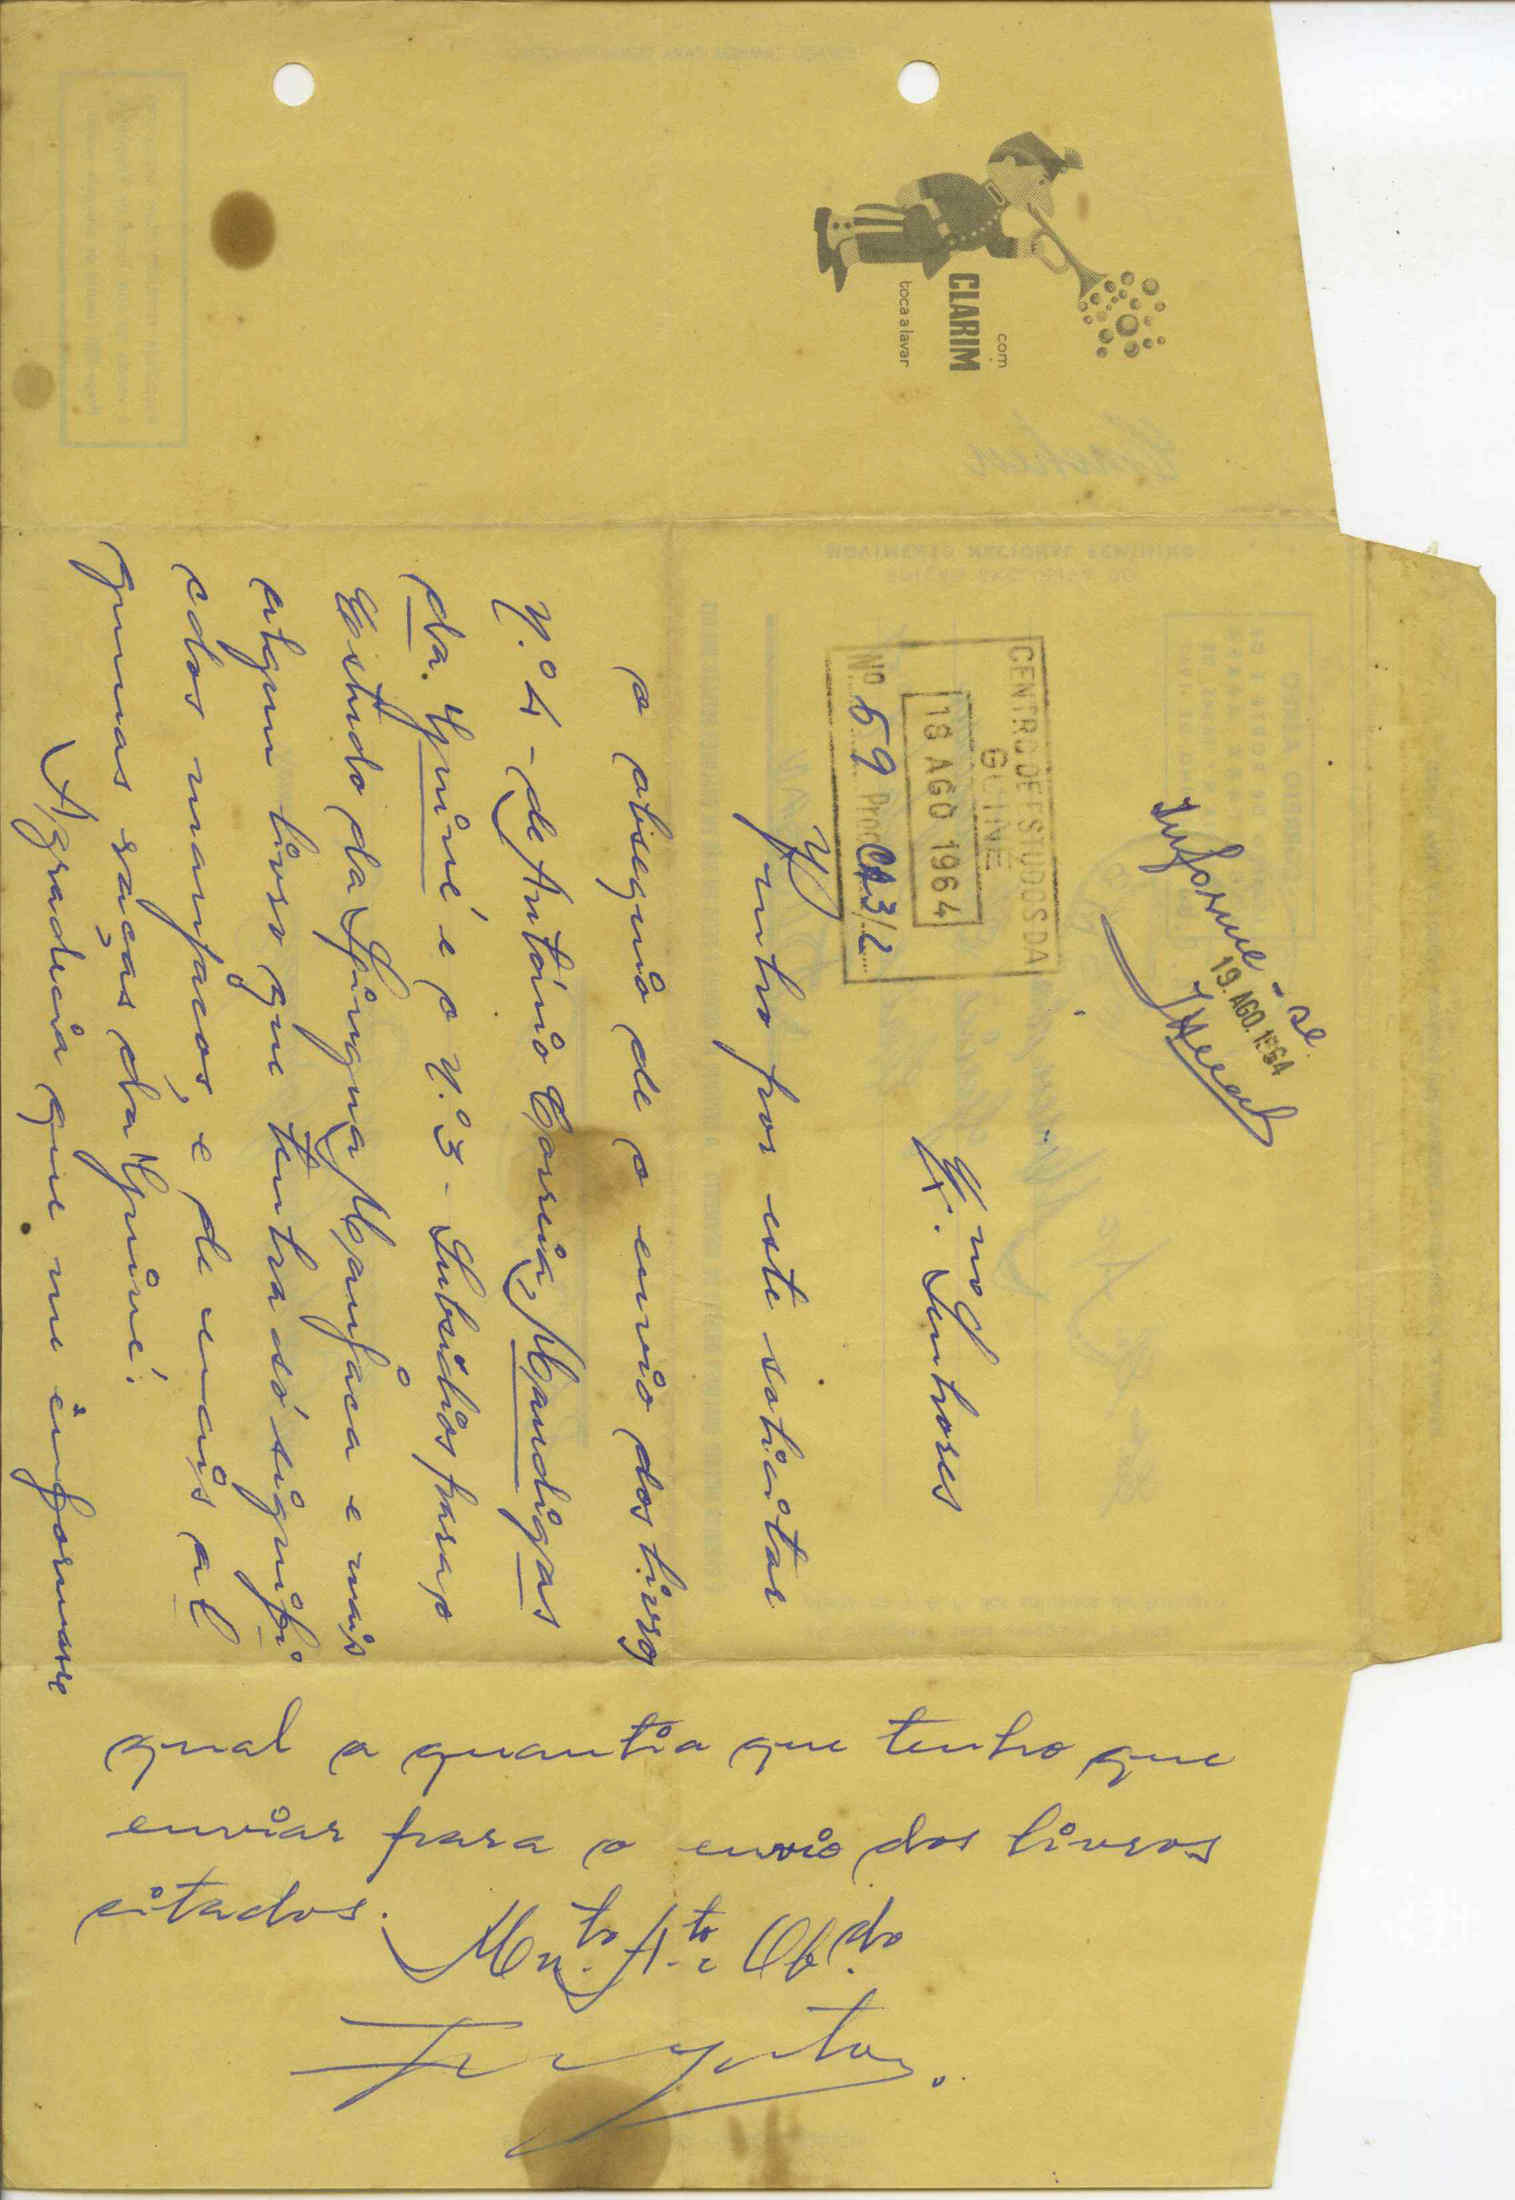 com
CLARIM
toca a lavar
Informe-se.
19. AGO. 1964
CENTRO DE ESTUDOS DA
GUINÉ
18 AGO 1964
Nº 59 Proc CA3/2
Ex.mos Senhores
Junho por este solicitar
o obsequio de o envio dos livros
N.º 4 - de António Carreia, Mandigas
da Guiné e o N.º 3 - Subsidios para o
Estudo da Língua Manjaca e mais
algum livro que tenha só signifi
cdos manjacos, e de mais al
gumas raças da Guiné.
Agradecia que me informasse
qual a quantia que tenho que
enviar para o envio dos livros
citados.
Mu.to At.to Ob.do